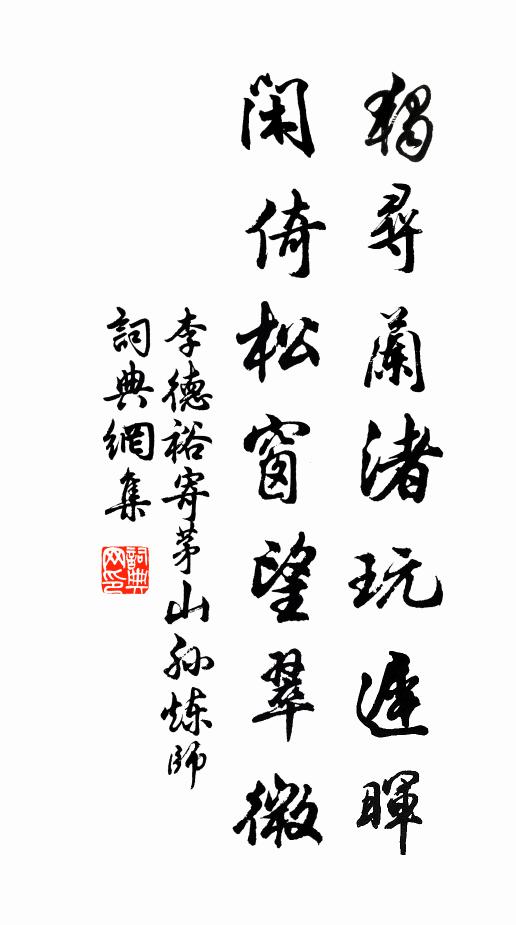 獨尋蘭渚玩遲暉
閑倚松窗望翠微
李德裕寄茅山孙炼師
詞典網集
詞典网印